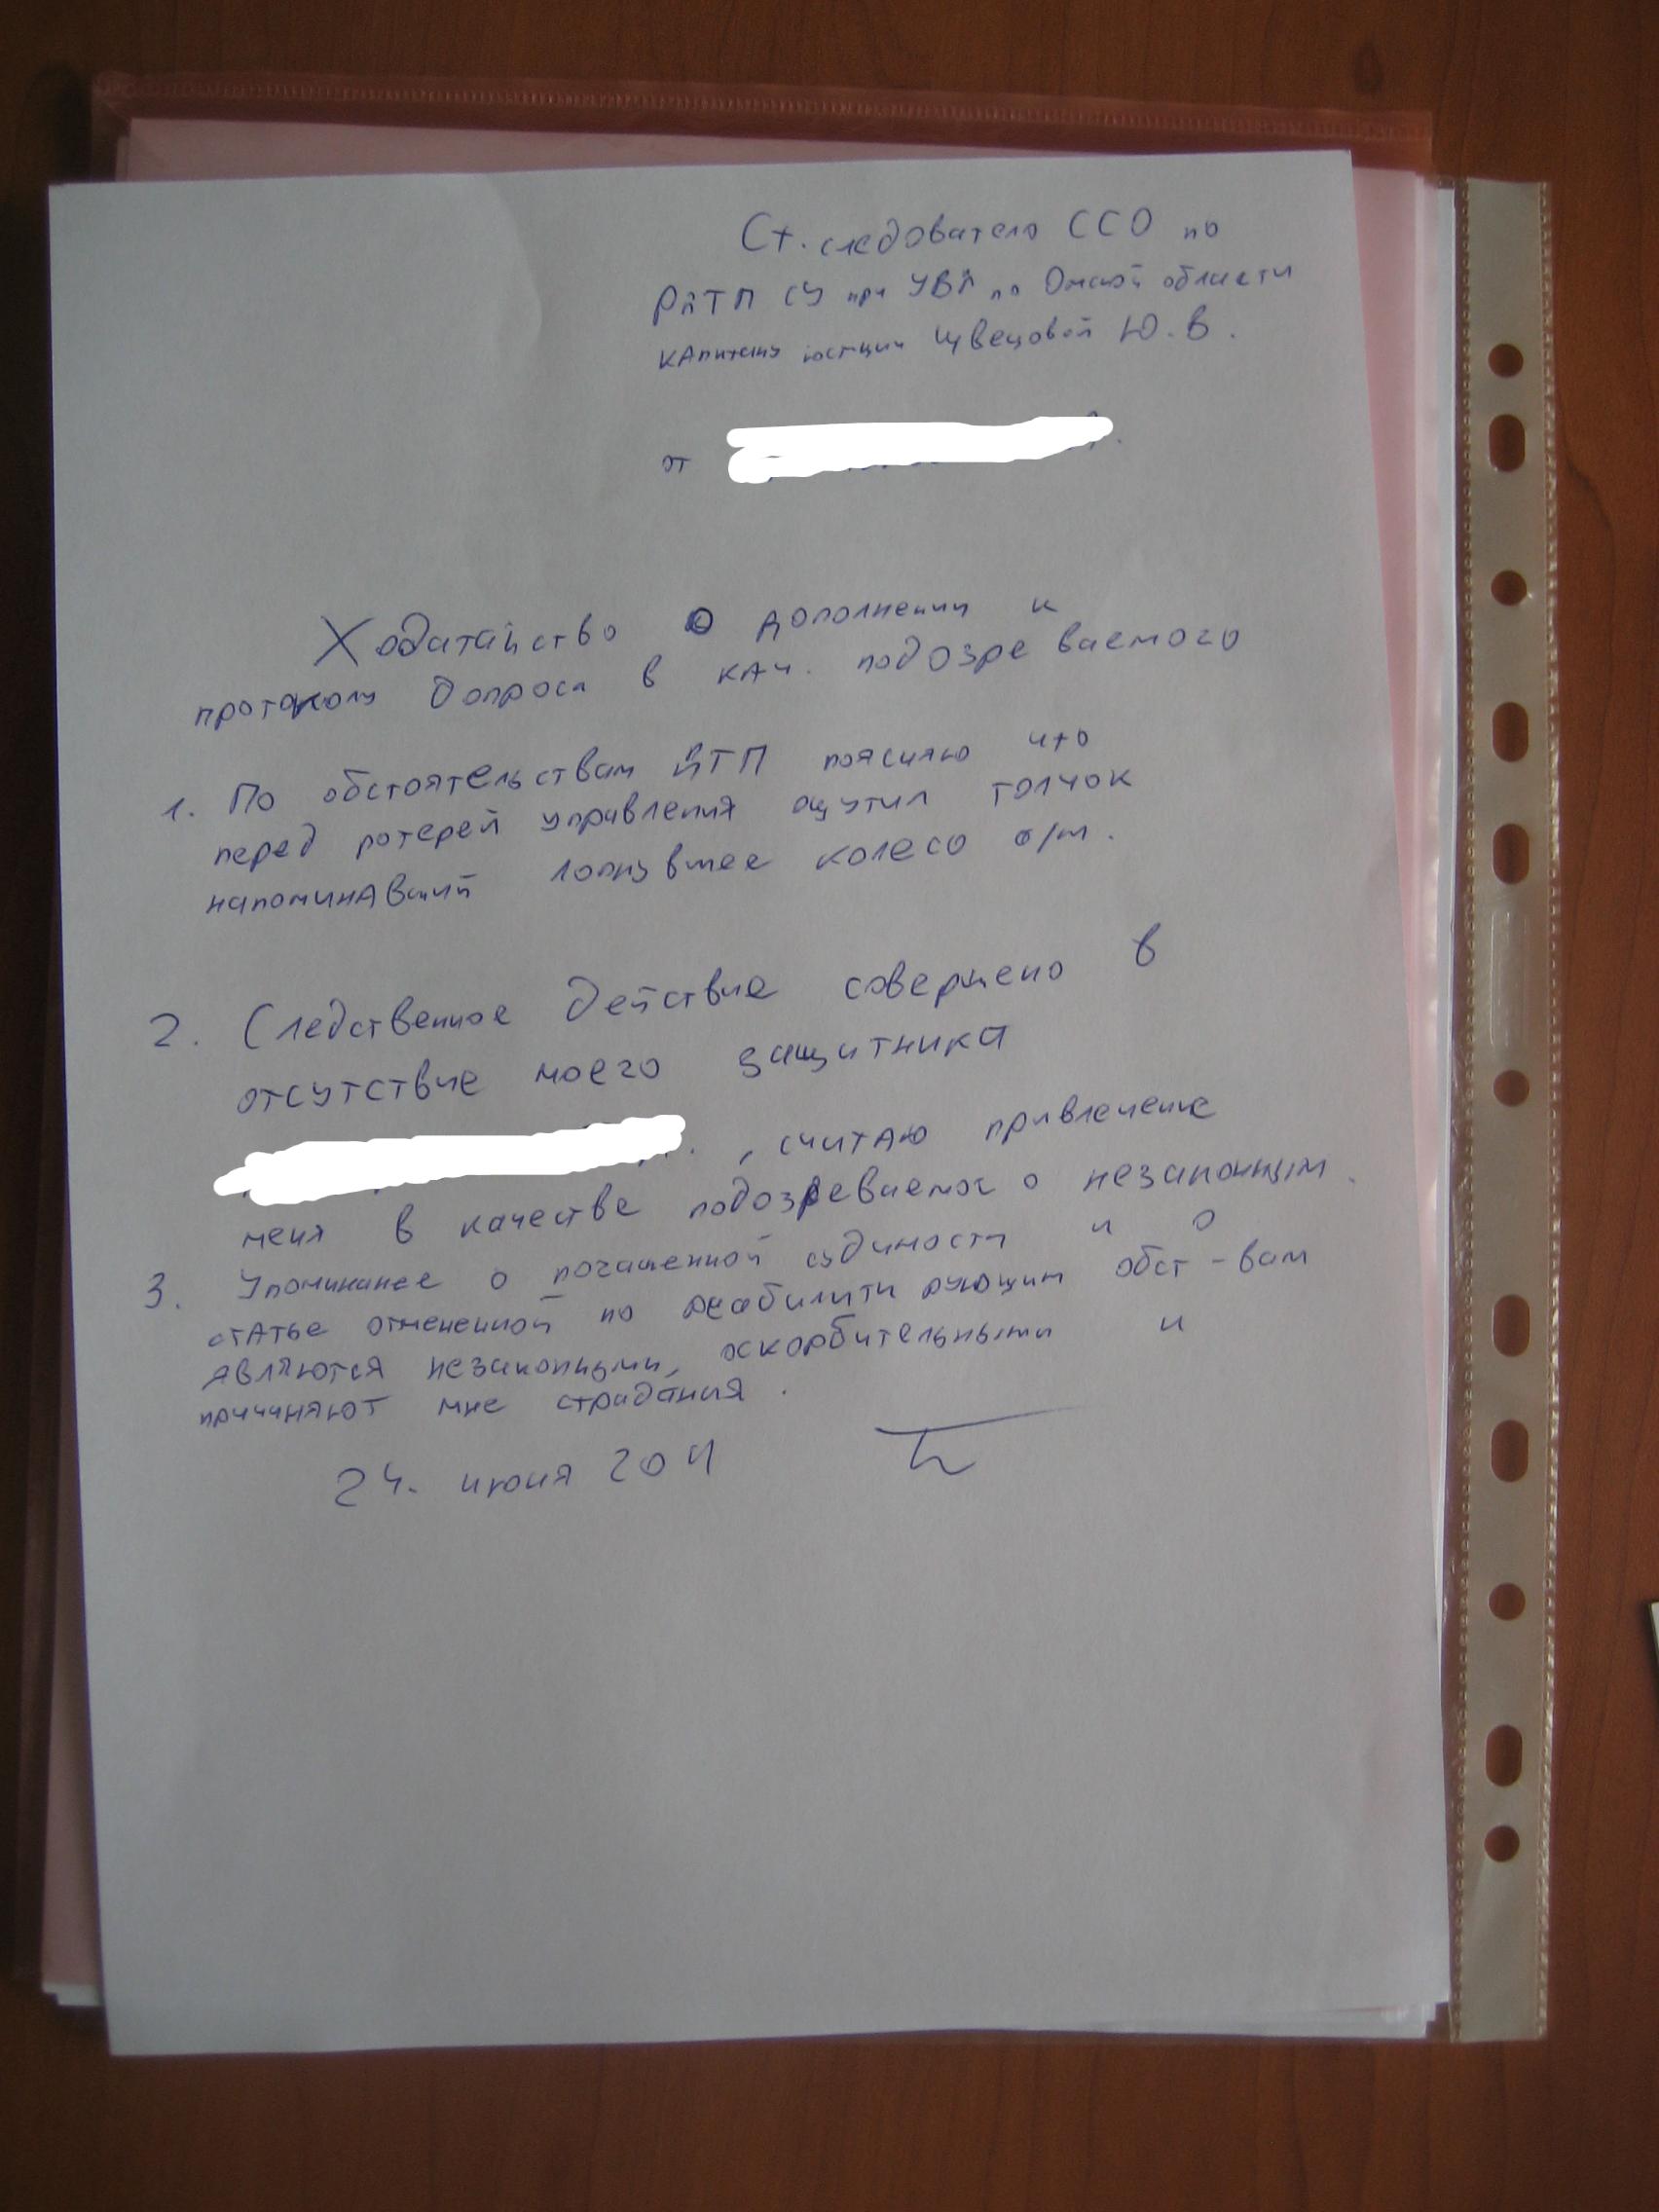 Ст. следователю ССО по
РДТП СУ при УВД по Омской области
капитану юстиции Швецовой Ю.В.
от
Ходатайство о дополнении к
протоколу допроса в кач. подозреваемого
1. По обстоятельствам ДТП поясняю что
перед потерей управления ощутил толчок
напоминавший лопнувшее колесо а/м.
2. Следственное действие совершено в
отсутствие моего защитника
, считаю привлечение
меня в качестве подозреваемого незаконным.
3. Упоминанее о погашенной судимости и о
статье отмененной по реабилитирующим обст-вам
являются незаконными, оскорбительными и
причиняют мне страдания.
24. июня 2011